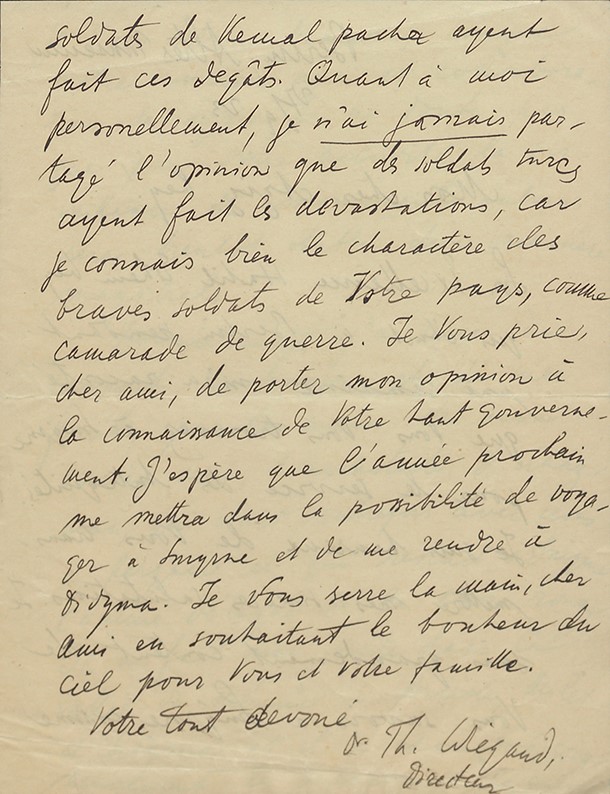 soldats de Kemal pacha ayent
fait ces degâts. Quant à moi
personellement, je n'ai jamais par-
tagé l'opinion que des soldats turcs
ayent fait les devastations, car
je connais bien le charactère des
braves soldats de Votre pays, comme
camarade de guerre. Je Vous prie,
cher ami, de porter mon opinion à
la connaissance de Votre haut Gouverne-
ment. J'espère que l'année prochain
me mettra dans la possibilité de voya-
ger à Smyrne et de me rendre à
Didyma. Je Vous serre la main, cher
Ami en souhaitant le bonheur du
ciel pour Vous et votre famille.
Votre tout devoué
Dr. Th. Wiegand,
Directeur